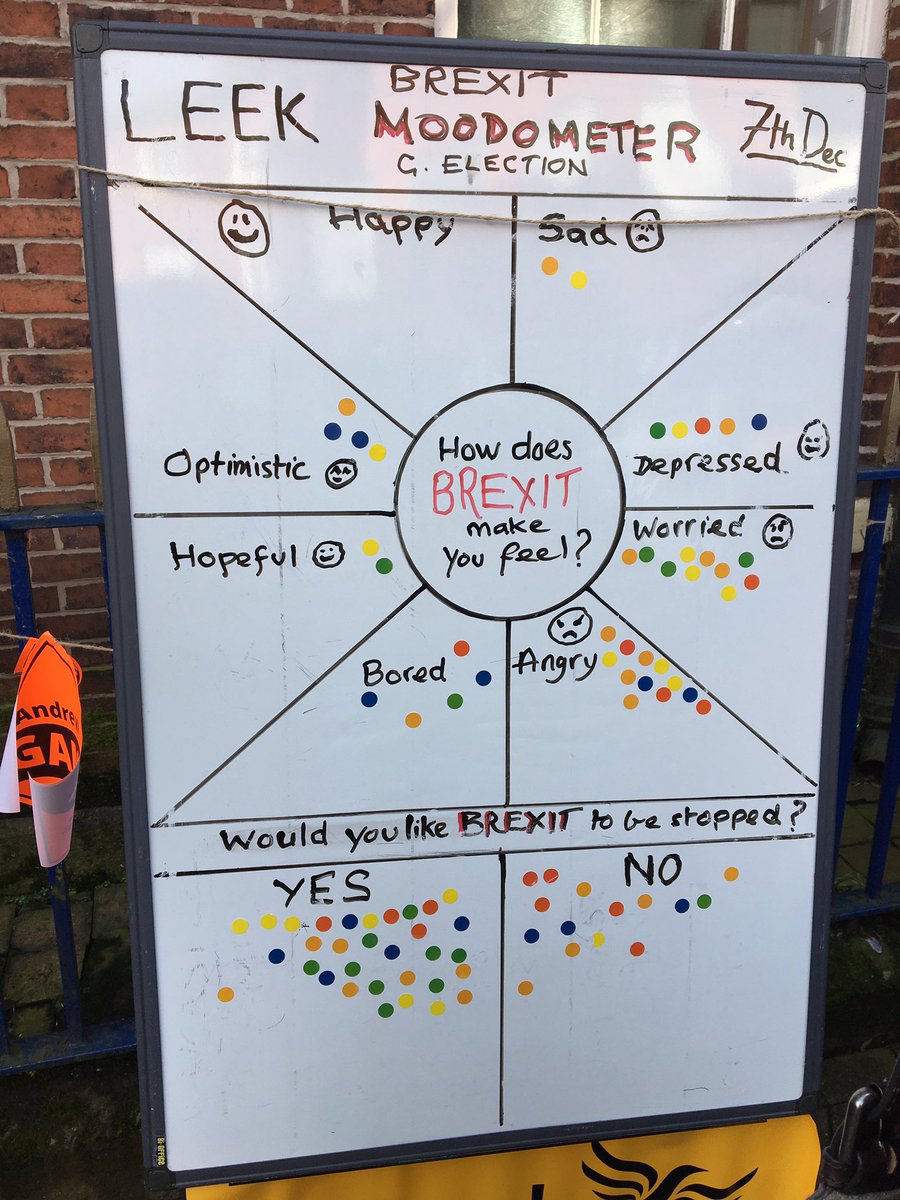 LEEK BREXIT 7th Dec
MOODOMETER
G. ELECTION
Happy
Sad
Optimistic
Depressed
Hopeful
Worried
How does
BREXIT
make
you feel?
Bored
Angry
Would you like BREXIT to be stopped?
YES
NO
Andrew
GA
BI-OFFICE